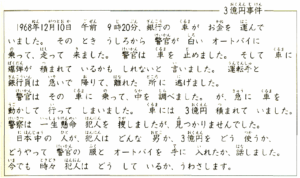 3億円事件
1968年12月10日 午前 9時20分、銀行の 車が お金を 運んで
いました。 その とき うしろから 警官が 白い オートバイに
乗って、走って 来ました。 警官は 車を 止めました。 そして 車に
爆弾が 積まれて いるかも しれないと 言いました。 運転手と
銀行員は 急いで 降りて、離れた 所に 逃げました。
警官は その 車に 乗って、中を 調べました。 が、急に 車を
動かして 行って しまいました。 車には 3億円 積まれて いました。
警察は 一生懸命 犯人を 捜しましたが、見つかりませんでした。
日本中の 人が、犯人は どんな 男か、3億円を どう 使うか、
どうやって 警官の 服と オートバイを 手に 入れたか、話しました。
今でも 時々 犯人は どう して いるか、うわさします。